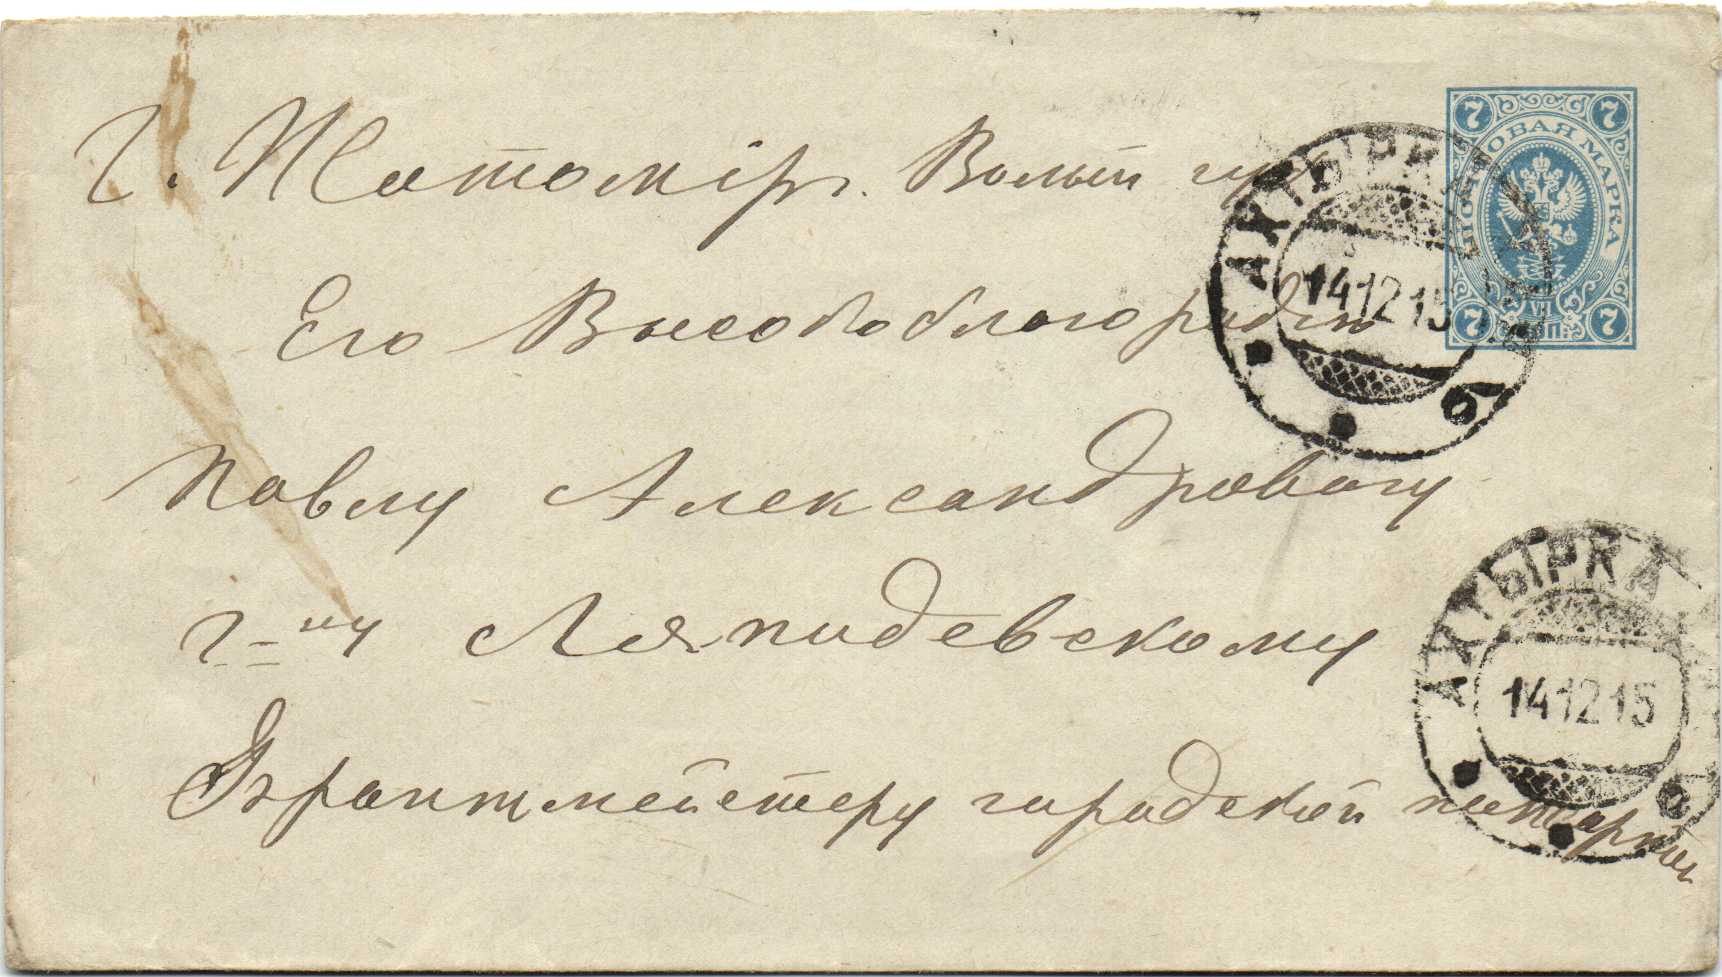 г. Житомір. Волын губ
7 ПОЧТОВАЯ МАРКА 7
7 VII КОП. 7
АХТЫРКА
14 12 15
б
Его Высокоблагородію
Павлу Александровичу
г-ну Ляпидевскому
АХТЫРКА
14 12 15
б
Брантмейстеру городской пожарной